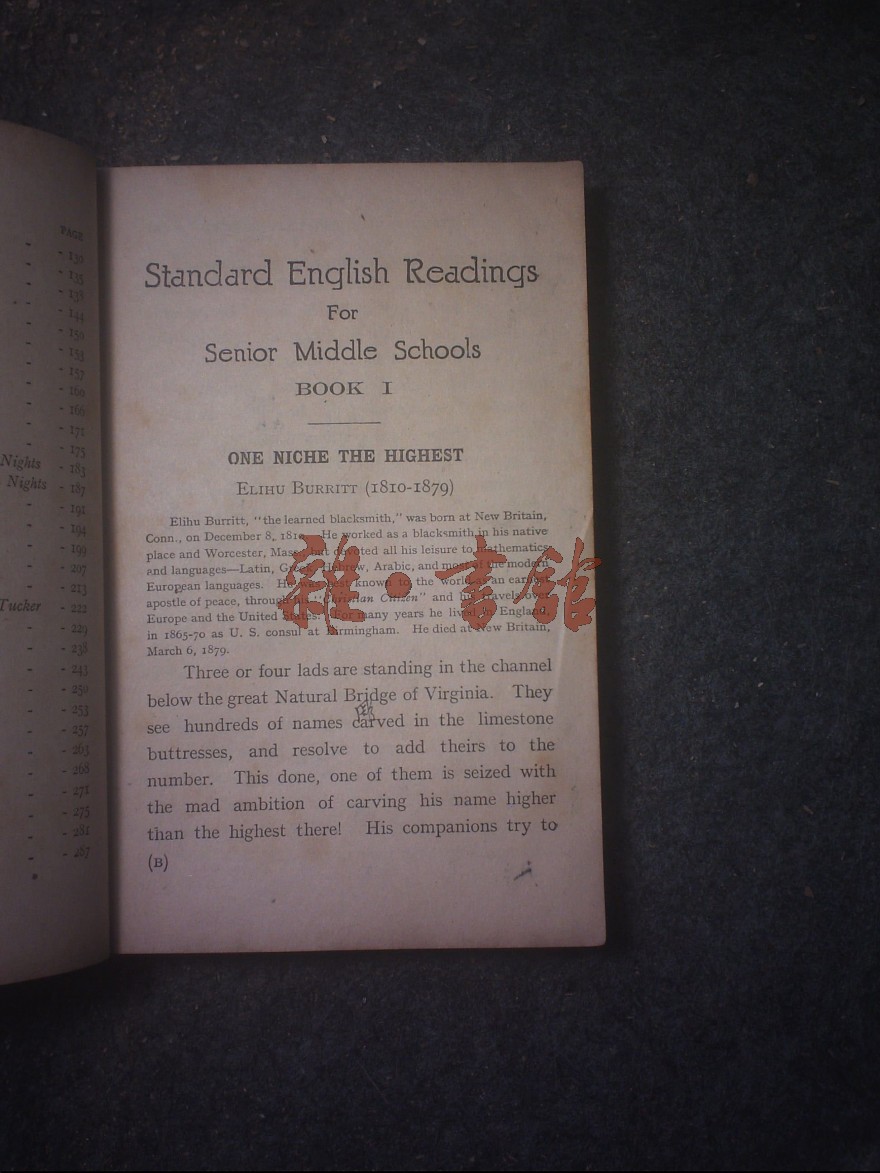 PAGE
- - 130
- - 135
- - 138
- - 144
- - 150
- - 153
- - 157
- - 160
- - 166
- - 171
- - 175
Nights - 183
Nights - 187
- - 191
- - 194
- - 199
- - 207
- - 213
Tucker - 222
- - 229
- - 238
- - 243
- - 250
- - 253
- - 257
- - 263
- - 268
- - 271
- - 275
- - 281
- - 287
Standard English Readings
For
Senior Middle Schools
BOOK I
ONE NICHE THE HIGHEST
ELIHU BURRITT (1810-1879)
Elihu Burritt, "the learned blacksmith," was born at New Britain,
Conn., on December 8, 1810. He worked as a blacksmith in his native
place and Worcester, Mass., but devoted all his leisure to mathematics
and languages—Latin, Greek, Hebrew, Arabic, and most of the modern
European languages. He was best known to the world as an earnest
apostle of peace, through his "Christian Citizen" and his travels over
Europe and the United States. For many years he lived in England,
in 1865-70 as U. S. consul at Birmingham. He died at New Britain,
March 6, 1879.
Three or four lads are standing in the channel
below the great Natural Bridge of Virginia. They
see hundreds of names carved in the limestone
buttresses, and resolve to add theirs to the
number. This done, one of them is seized with
the mad ambition of carving his name higher
than the highest there! His companions try to
(B)
雜·書館